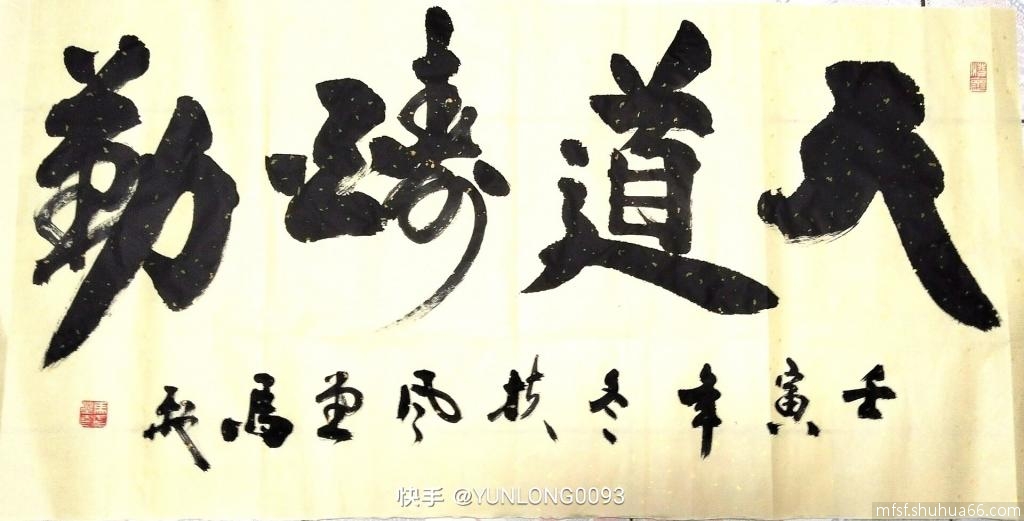 天道酬勤
壬寅年冬扶风堂马
快手 @YUNLONG0093
mfsf.shuhua66.com